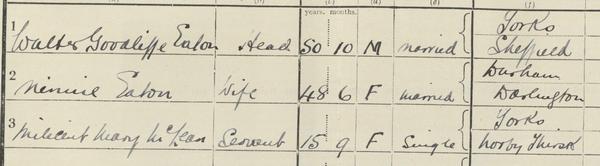 years. months.
1 Yorks
Walter Goodliffe Eaton Head 50 10 M married Sheffield
2 Durham
Ninnie Eaton Wife 48 6 F married Darlington
3 Yorks
Milicent Mary McLean Servant 15 9 F Single Norby Thirsk